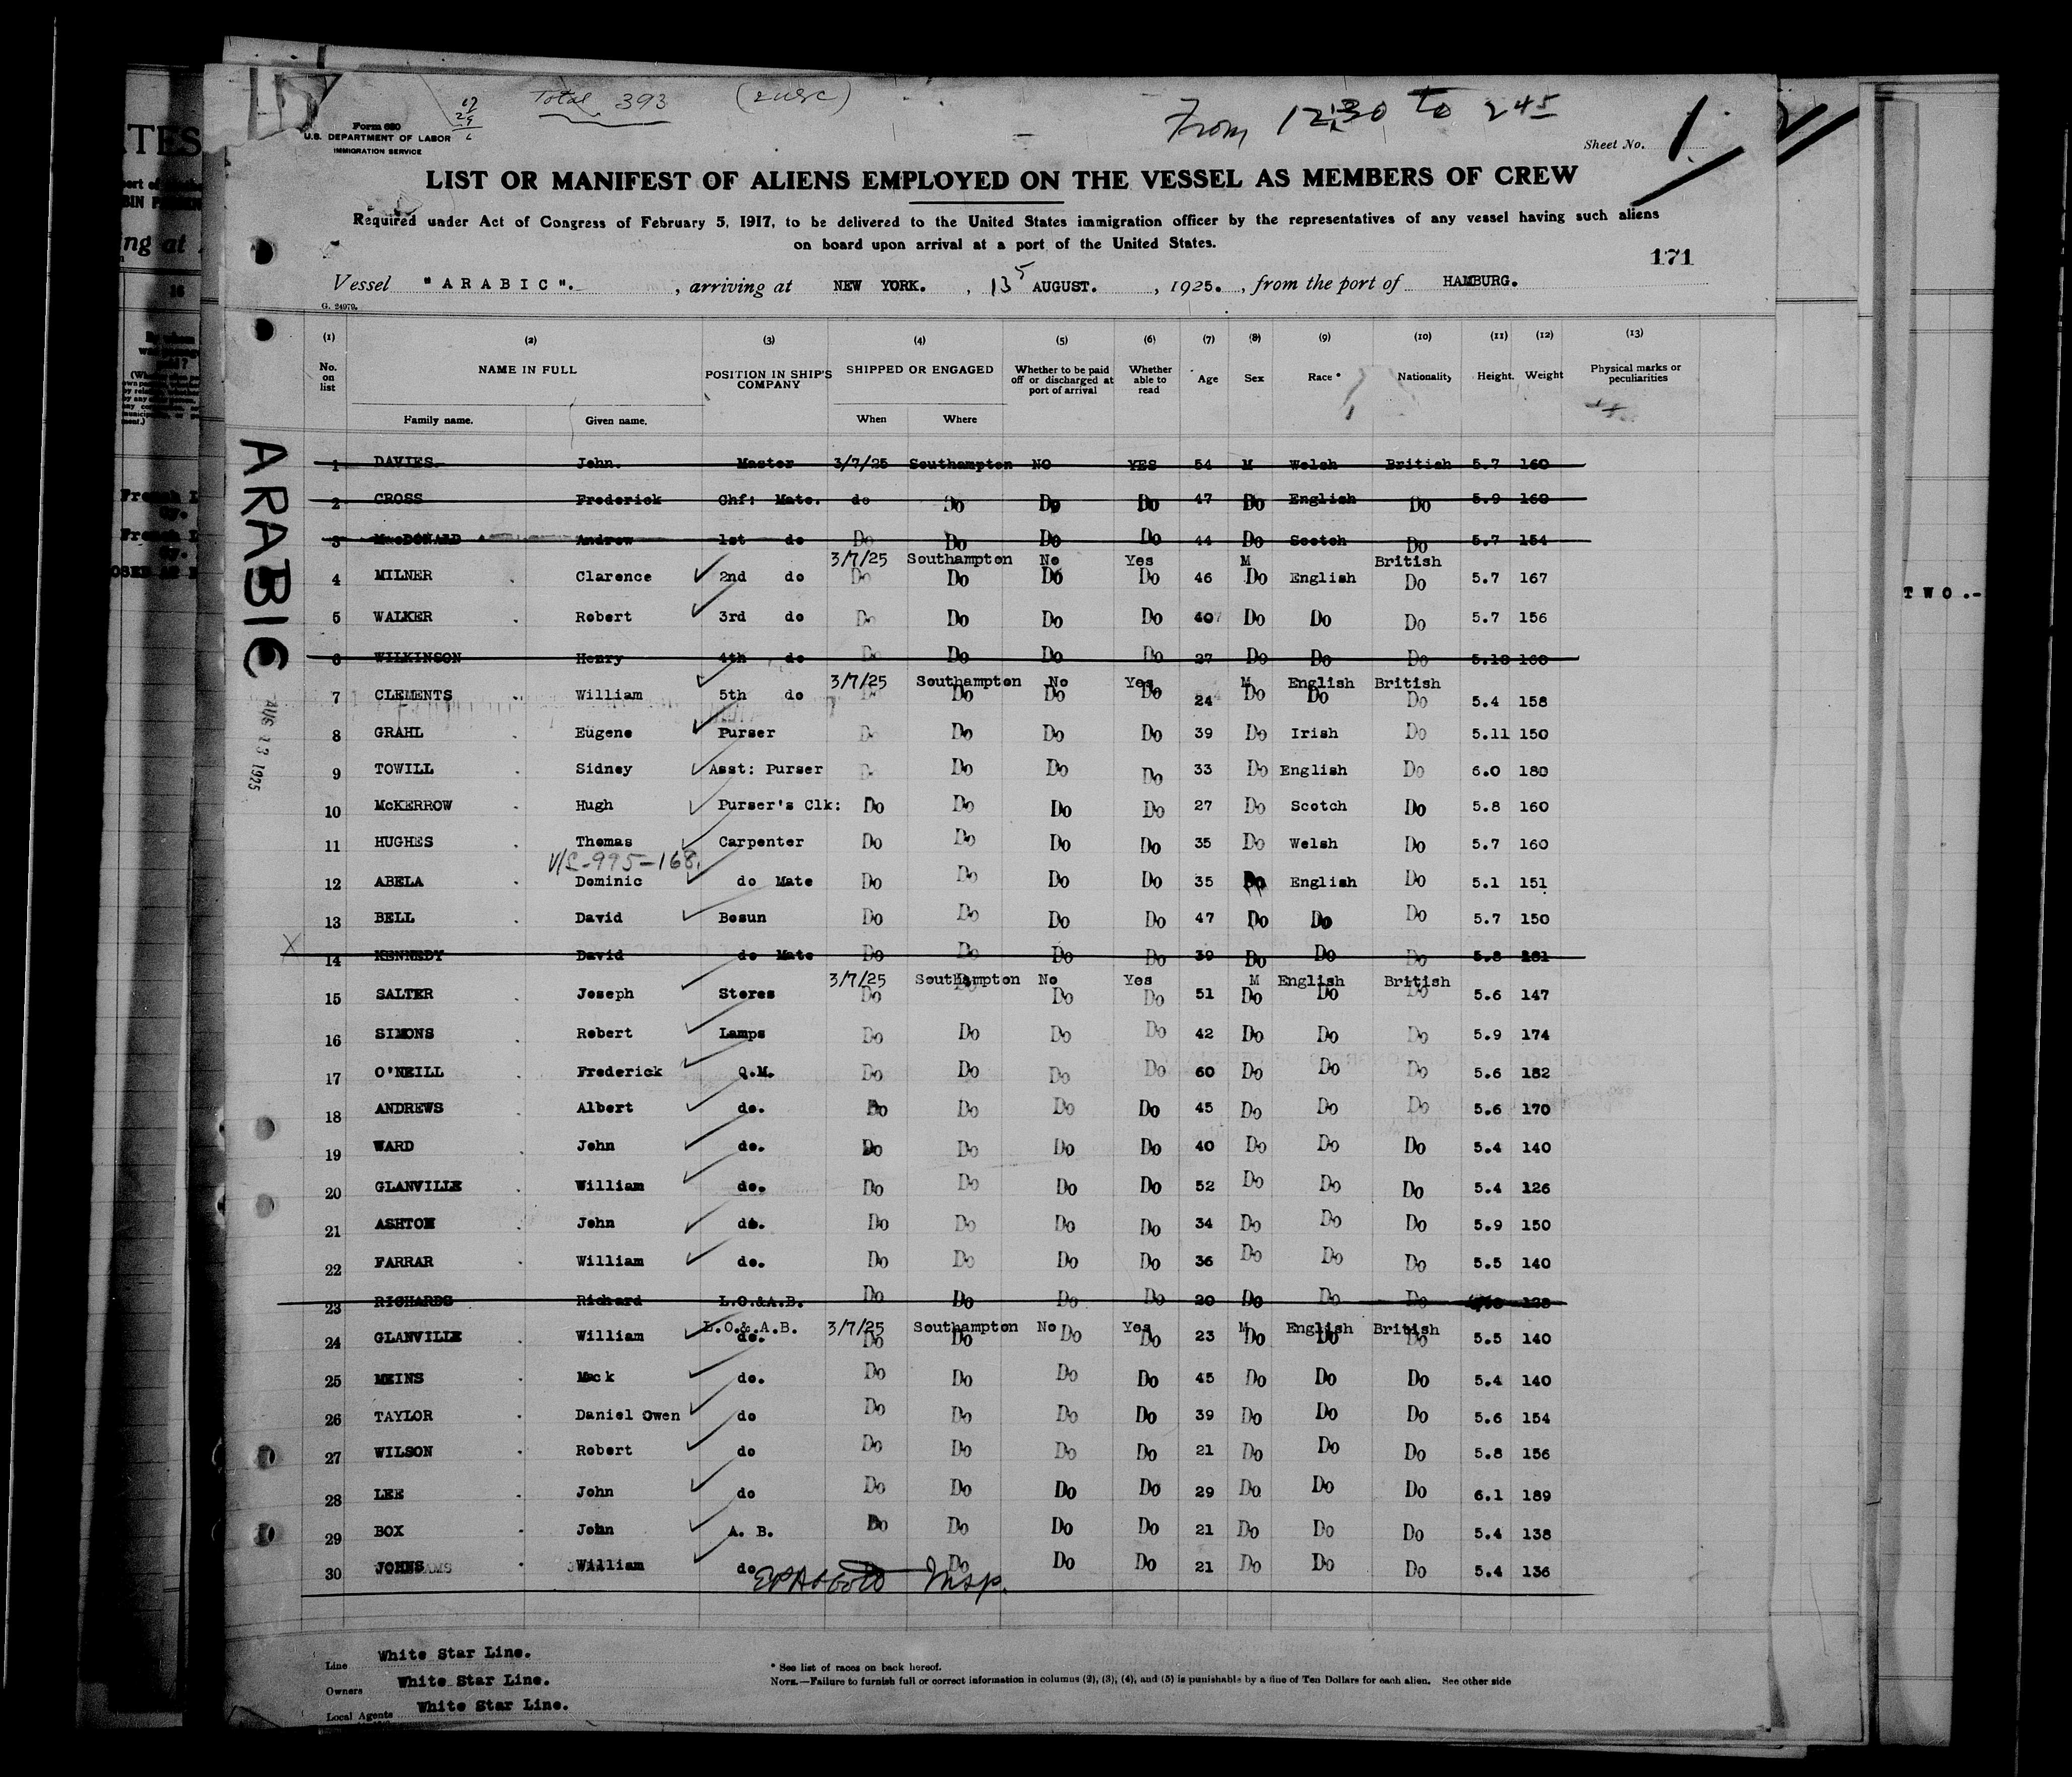 Total 393 (2 USC)
From 12:30 to 2 45
Form 680
U.S. DEPARTMENT OF LABOR
IMMIGRATION SERVICE
Sheet No. 1
LIST OR MANIFEST OF ALIENS EMPLOYED ON THE VESSEL AS MEMBERS OF CREW
Required under Act of Congress of February 5, 1917, to be delivered to the United States immigration officer by the representatives of any vessel having such aliens
on board upon arrival at a port of the United States.
171
Vessel "ARABIC". , arriving at NEW YORK. , 13 AUGUST. , 1925. , from the port of HAMBURG.
G. 24079.
(1) (2) (3) (4) (5) (6) (7) (8) (9) (10) (11) (12) (13)
No. on list NAME IN FULL POSITION IN SHIP'S COMPANY SHIPPED OR ENGAGED Whether to be paid off or discharged at port of arrival Whether able to read Age Sex Race * Nationality Height. Weight Physical marks or peculiarities
Family name. Given name. When Where
1 DAVIES John. Master 3/7/25 Southampton NO YES 54 M Welsh British 5.7 160
2 CROSS Frederick Chf: Mate. do Do Do Do 47 Do English Do 5.9 160
3 MacDONALD Andrew 1st do Do Do Do Do 44 Do Scotch Do 5.7 154
3/7/25 Southampton No Yes M British
4 MILNER Clarence 2nd do Do Do Do Do 46 Do English Do 5.7 167
5 WALKER Robert 3rd do Do Do Do Do 40 Do Do Do 5.7 156
6 WILKINSON Henry 4th do Do Do Do Do 27 Do Do Do 5.10 160
3/7/25 Southampton No Yes M English British
7 CLEMENTS William 5th do Do Do Do Do 24 Do Do Do 5.4 158
8 GRAHL Eugene Purser Do Do Do Do 39 Do Irish Do 5.11 150
9 TOWILL Sidney Asst: Purser Do Do Do Do 33 Do English Do 6.0 180
10 McKERROW Hugh Purser's Clk: Do Do Do Do 27 Do Scotch Do 5.8 160
11 HUGHES Thomas Carpenter Do Do Do Do 35 Do Welsh Do 5.7 160
V/L-995-168.
12 ABELA Dominic do Mate Do Do Do Do 35 Do English Do 5.1 151
13 BELL David Bosun Do Do Do Do 47 Do Do Do 5.7 150
X 14 KENNEDY David do Mate Do Do Do Do 39 Do Do Do 5.8
3/7/25 Southampton No Yes M English British
15 SALTER Joseph Stores Do Do Do Do 51 Do Do Do 5.6 147
16 SIMONS Robert Lamps Do Do Do Do 42 Do Do Do 5.9 174
17 O'NEILL Frederick Q.M. Do Do Do Do 60 Do Do Do 5.6 182
18 ANDREWS Albert do. Do Do Do Do 45 Do Do Do 5.6 170
19 WARD John do. Do Do Do Do 40 Do Do Do 5.4 140
20 GLANVILLE William do. Do Do Do Do 52 Do Do Do 5.4 126
21 ASHTON John do. Do Do Do Do 34 Do Do Do 5.9 150
22 FARRAR William do. Do Do Do Do 36 Do Do Do 5.5 140
23 RICHARDS Richard L.O.&A.B. Do Do Do Do 20 Do Do Do
L.O.&.A.B. 3/7/25 Southampton No Yes M English British
24 GLANVILLE William do. Do Do Do Do 23 Do Do Do 5.5 140
25 MEINS Mack do. Do Do Do Do 45 Do Do Do 5.4 140
26 TAYLOR Daniel Owen do Do Do Do Do 39 Do Do Do 5.6 154
27 WILSON Robert do Do Do Do Do 21 Do Do Do 5.8 156
28 LEE John do Do Do Do Do 29 Do Do Do 6.1 189
29 BOX John A. B. Do Do Do Do 21 Do Do Do 5.4 138
30 JOHNS William do Do Do Do Do 21 Do Do Do 5.4 136
Insp.
Line White Star Line.
Owners White Star Line.
Local Agents White Star Line.
* See list of races on back hereof.
NOTE.—Failure to furnish full or correct information in columns (2), (3), (4), and (5) is punishable by a fine of Ten Dollars for each alien. See other side
ARABIC
AUG 13 1925
TWO.-